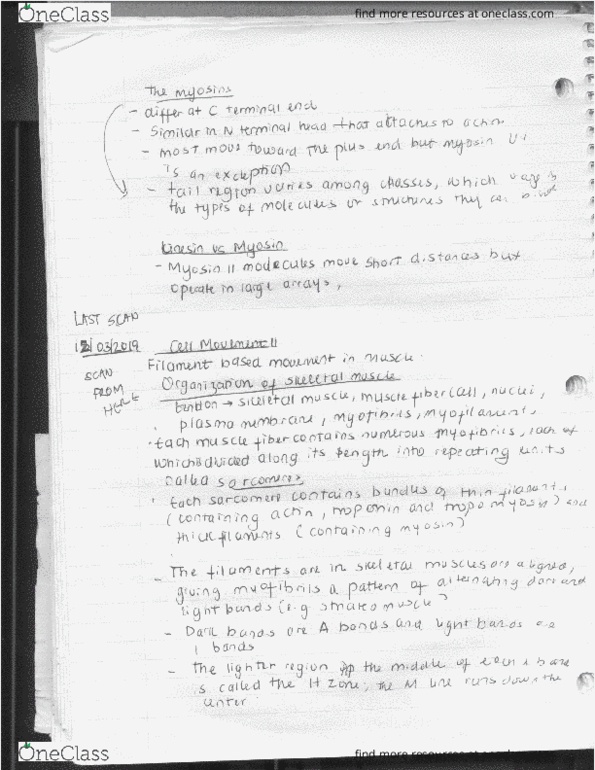 OneClass
find more resources at oneclass.com
The myosins
- differ at C terminal end
- Similar in N terminal head that attaches to actin
- most move toward the plus end but myosin VI
is an exception
- tail region varies among classes, which
the types of molecules or structures they can bind
Kinesin vs Myosin
- Myosin II molecules move short distances but
operate in large arrays,
LAST SCAN
12/03/2019 Cell Movement II
SCAN
FROM
HERE
Filament based movement in muscle.
Organization of skeletal muscle
tendon → skeletal muscle, muscle fiber (cell, nuclei,
plasma membrane, myofibrils, myofilament,
· Each muscle fiber contains numerous myofibrils, each of
which divided along its length into repeating units
called sarcomeres
· Each sarcomere contains bundles of thin filaments
(containing actin, troponin and tropomyosin) and
thick filaments (containing myosin)
- The filaments are in skeletal muscles are aligned,
giving myofibrils a pattern of alternating dark and
light bands (e.g. striated muscle)
- Dark bands are A bands and light bands are
I bands
- The lighter region in the middle of each A band
is called the H zone; the M line runs down the
center
OneClass
find more resources at oneclass.com